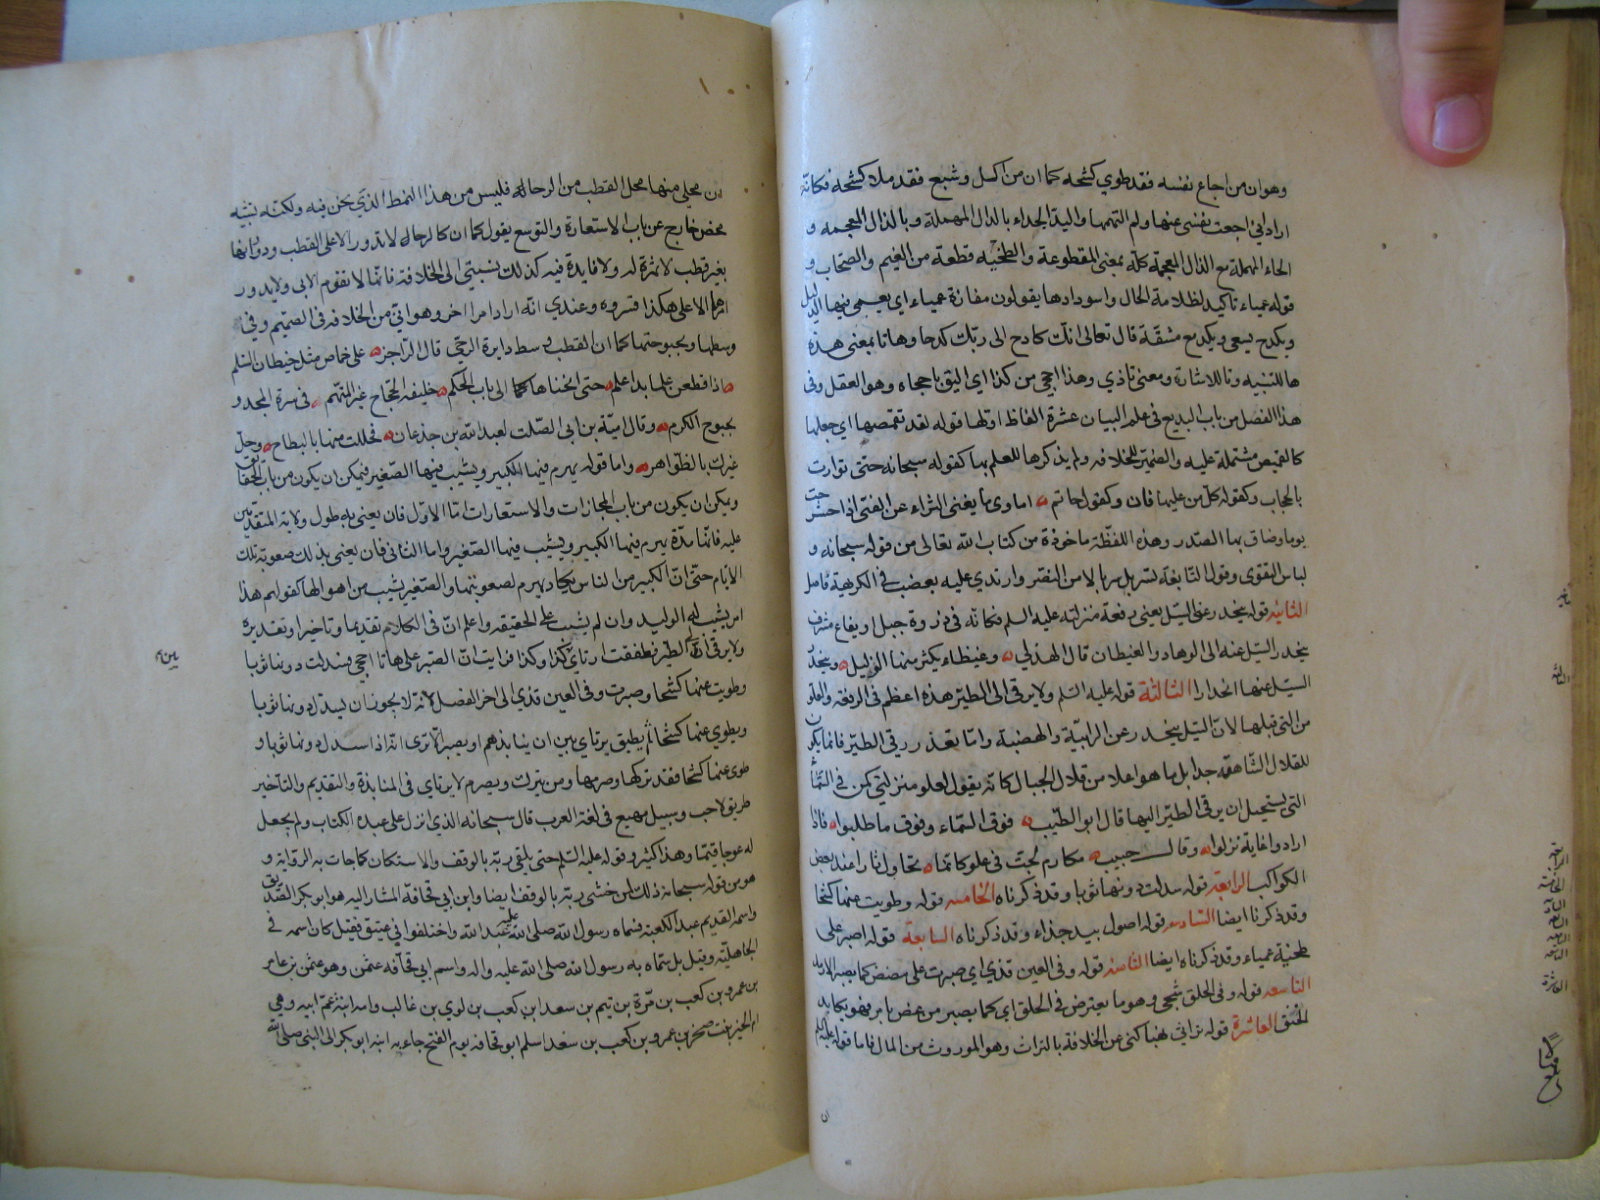 وهو ان من اجاع نفسه فقد طوي كشحه كما ان من اكل وشبع فقد ملا كشحه فكانّه
اراد اني اجعت نفسي عنها ولم التهمها واليد الجداء بالدال المهملة وبالذال المعجمه و
الحاء المهملة مع الذال المعجمة كلّه بمعنى المقطوعة والطخيه قطعة من الغيم والسحاب و
قوله عمياء تاكيد لظلامة الحال واسودادها يقولون مفازة عمياء اي يعمى فيها الدليل
ويكدح يسعى ويكدح مع مشقّة قال تعالى انّك كادح الى ربّك كدحا وهاتا بمعنى هذه
ها للتنبيه وتا للاشارة ومعنى تا ذي وهذا احجى من كذا اي اليق باحجاه وهو العقل وفى
هذا الفصل من باب البديع فى علم البيان عشرة الفاظ اولها قوله لقد تقمّصها اي جعلها
كالقميص مشتملة عليه والضمير للخلافه ولم يذكرها للعلم بها كقوله سبحانه حتى توارت
بالحجاب وكقوله كلّ من عليها فان وكقول حاتم اماوى ما يغنى الثراء عن الفتى اذا حشرجت
يوما وضاق بها الصّدر وهذه اللفظة ماخوذة من كتاب الله تعالى من قوله سبحانه و
لباس التقوى وقول النابغه تسربل سربالا من النصر وارتدي عليه بعضب فى الكريهة فاصل
الثانية قوله ينحدر عنى السّيل يعنى رفعة منزلته عليه السلم فكانّه فى ذروة جبل او يفاع مشرف
ينحدر السّيل عنه الى الوهاد والغيطان قال الهذلي وعيطاء يكثر منها الزليل وينحدر
السيل عنها انحدارا الثالثة قوله عليه السلم ولا يرقى الى الطير هذه اعظم فى الرفعه والعلو
من التي قبلها لان السّيل ينحدر عن الرابية والهضبة وامّا تعذر رقي الطير فانما يكون
للقلال الشاهقه جدا بل ما هو اعلا من قلال الجبال كانّه يقول لعلو منزلتي كمن فى السّماء
التي يستحيل ان يرقى الطير اليها قال ابو الطيّب فوق السّماء وفوق ما طلبوا فاذا
ارادوا غاية نزلوا وقال حبيب مكارم لجّت فى علو كانّما تحاول ثارا عند بعض
الكواكب الرابعة قوله سدلت دونها ثوبا وقد ذكرناه الخامسه قوله وطويت عنها كشحا
وقد ذكرنا ايضا السّادسه قوله اصول بيد جذاء وقد ذكرناه السابعة قوله اصبر على
طخية عمياء وقد ذكرناه ايضا الثامنه قوله وفى العين قذي اي صبرت على مضض كما يصبر الارمد
التاسعه قوله وفى الحلق شجى وهو ما يعترض فى الحلق اي كما يصبر من غص بامر فهو يكابد
الخنق العاشرة قوله تراثى نهبا كنى عن الخلافة بالتراث وهو الموروث من المال فاما قوله عليه السلم
ان
ان محلي منها محل القطب من الرحا له فليس من هذا النمط الذي نحن فيه ولكنه تشبيه
محض خارج عن باب الاستعارة والتوسع يقول كما ان كالرحا له لا تدور الا على القطب ودورانها
بغير قطب لا ثمرة له ولا فايدة فيه كذلك نسبتي الى الخلافة فانّها لا تقوم الا بي ولا يدور
امرها الا علي هكذا فسروه وعندي انّه اراد امرا اخر وهو اني من الخلافه فى الصميم وفى
وسطها وبحبوحتها كما ان القطب وسط دايرة الرحي قال الرّاجز على خاص مثل خيطان السّلم
اذا قطعن علما بدا علم حتى انخناها الى باب الحكم خليفة الحجّاج غير المتهم فى سرة المجد و
بحبوح الكرم وقال اميّة بن ابى الصّلت لعبد الله بن جذعان فحللت منها بالبطاح وحلّ
غيرك بالظواهر واما قوله يهرم فيها الكبير ويشيب فيها الصّغير فيمكن ان يكون من باب الحقايق
ويمكن ان يكون من باب المجازات والاستعارات امّا الاوّل فان يعني به طول ولاية المتقدمين
عليه فانّها مدّة يهرم فيها الكبير ويشيب فيها الصّغير واما الثانى فان يعنى بذلك صعوبة تلك
الايّام حتى انّ الكبير من الناس يكاد يهرم لصعوبتها والصّغير يشيب من اهوالها كقولهم هذا
امر يشيب له الوليد وان لم يشب على الحقيقه واعلم انّ فى الكلام تقديما وتاخيرا وتقديره
ولا يرقى الى الطير فطفقت ارتاي بين كذا وكذا فرايت انّ الصبر على هاتا احجى فسدلت دونها ثوبا
وطويت عنها كشحا وصبرت وفى العين قذي الى اخر الفصل لانّه لا يجوز ان يسدل دونها ثوبا
ويطوي عنها كشحا ثمّ يطفق يرتاي بين ان ينابذهم او يصبر الا ترى انّه اذا سدل دونها ثوبا و
طوى عنها كشحا فقد تركها وصرمها ومن يترك ويصرم لا يرتاي فى المنابذة والتقديم والتاخير
طريق لاحب وسبيل مهيع فى لغة العرب قال سبحانه الذي انزل على عبده الكتاب ولم يجعل
له عوجا قيّما وهذا كثير وقوله عليه السّلم حتى يلقى ربّه بالوقف والاسكان كما جاءت به الرواية و
هو من قوله سبحانه ذلك لمن خشي ربّه بالوقف ايضا وابن ابى قحافة المشار اليه هو ابو بكر الصّديق
واسمه القديم عبد الكعبه فسماه رسول الله صلى الله عليه عبد الله واختلفوا في عتيق فقيل كان اسمه فى
الجاهليّة وقيل بل سمّاه به رسول الله صلى الله عليه واله واسم ابي قحافه عثمن وهو عثمن بن عامر
بن عمرو بن كعب بن سعد بن تيم بن مرّة بن كعب بن لوي بن غالب وامه ابنة عمّ ابيه وهي
ام الخير بنت صخر بن عمرو بن كعب بن سعد اسلم ابو قحافه يوم الفتح جاء به ابنه ابو بكر الى النبى صلى الله